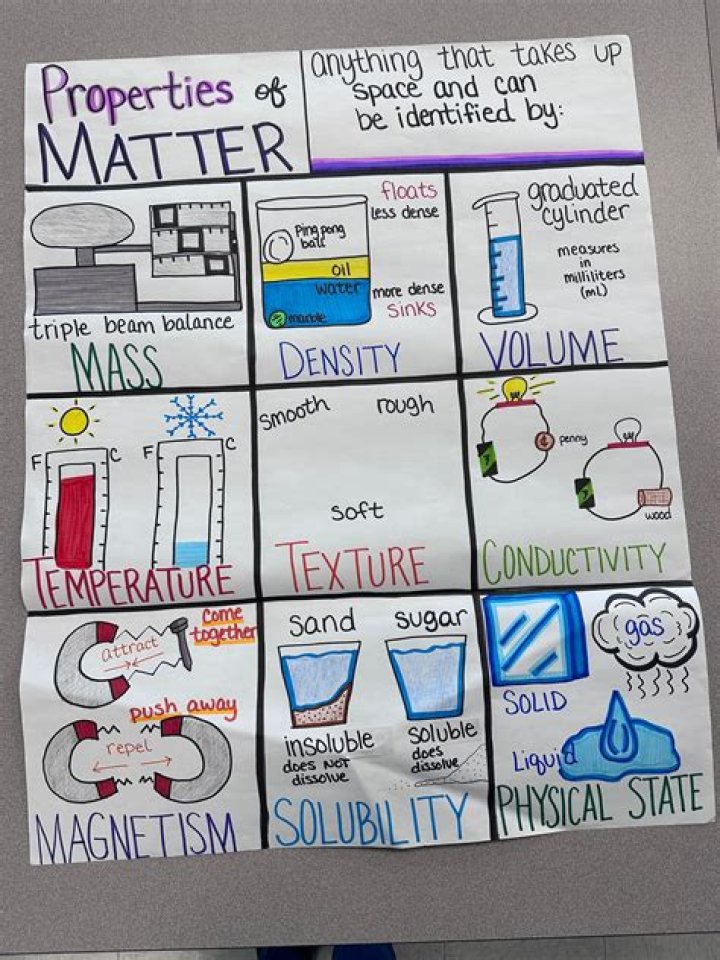 Properties of
MATTER
anything that takes up
space and can
be identified by:
triple beam balance
MASS
floats
less dense
Ping pong
ball
oil
water
more dense
sinks
marble
DENSITY
graduated
cylinder
measures
in
milliliters
(mL)
VOLUME
F C
F C
TEMPERATURE
smooth rough
soft
TEXTURE
penny
wood
CONDUCTIVITY
come
together
attract
push away
repel
MAGNETISM
sand sugar
insoluble
does NOT
dissolve
soluble
does
dissolve
SOLUBILITY
SOLID
gas
Liquid
PHYSICAL STATE